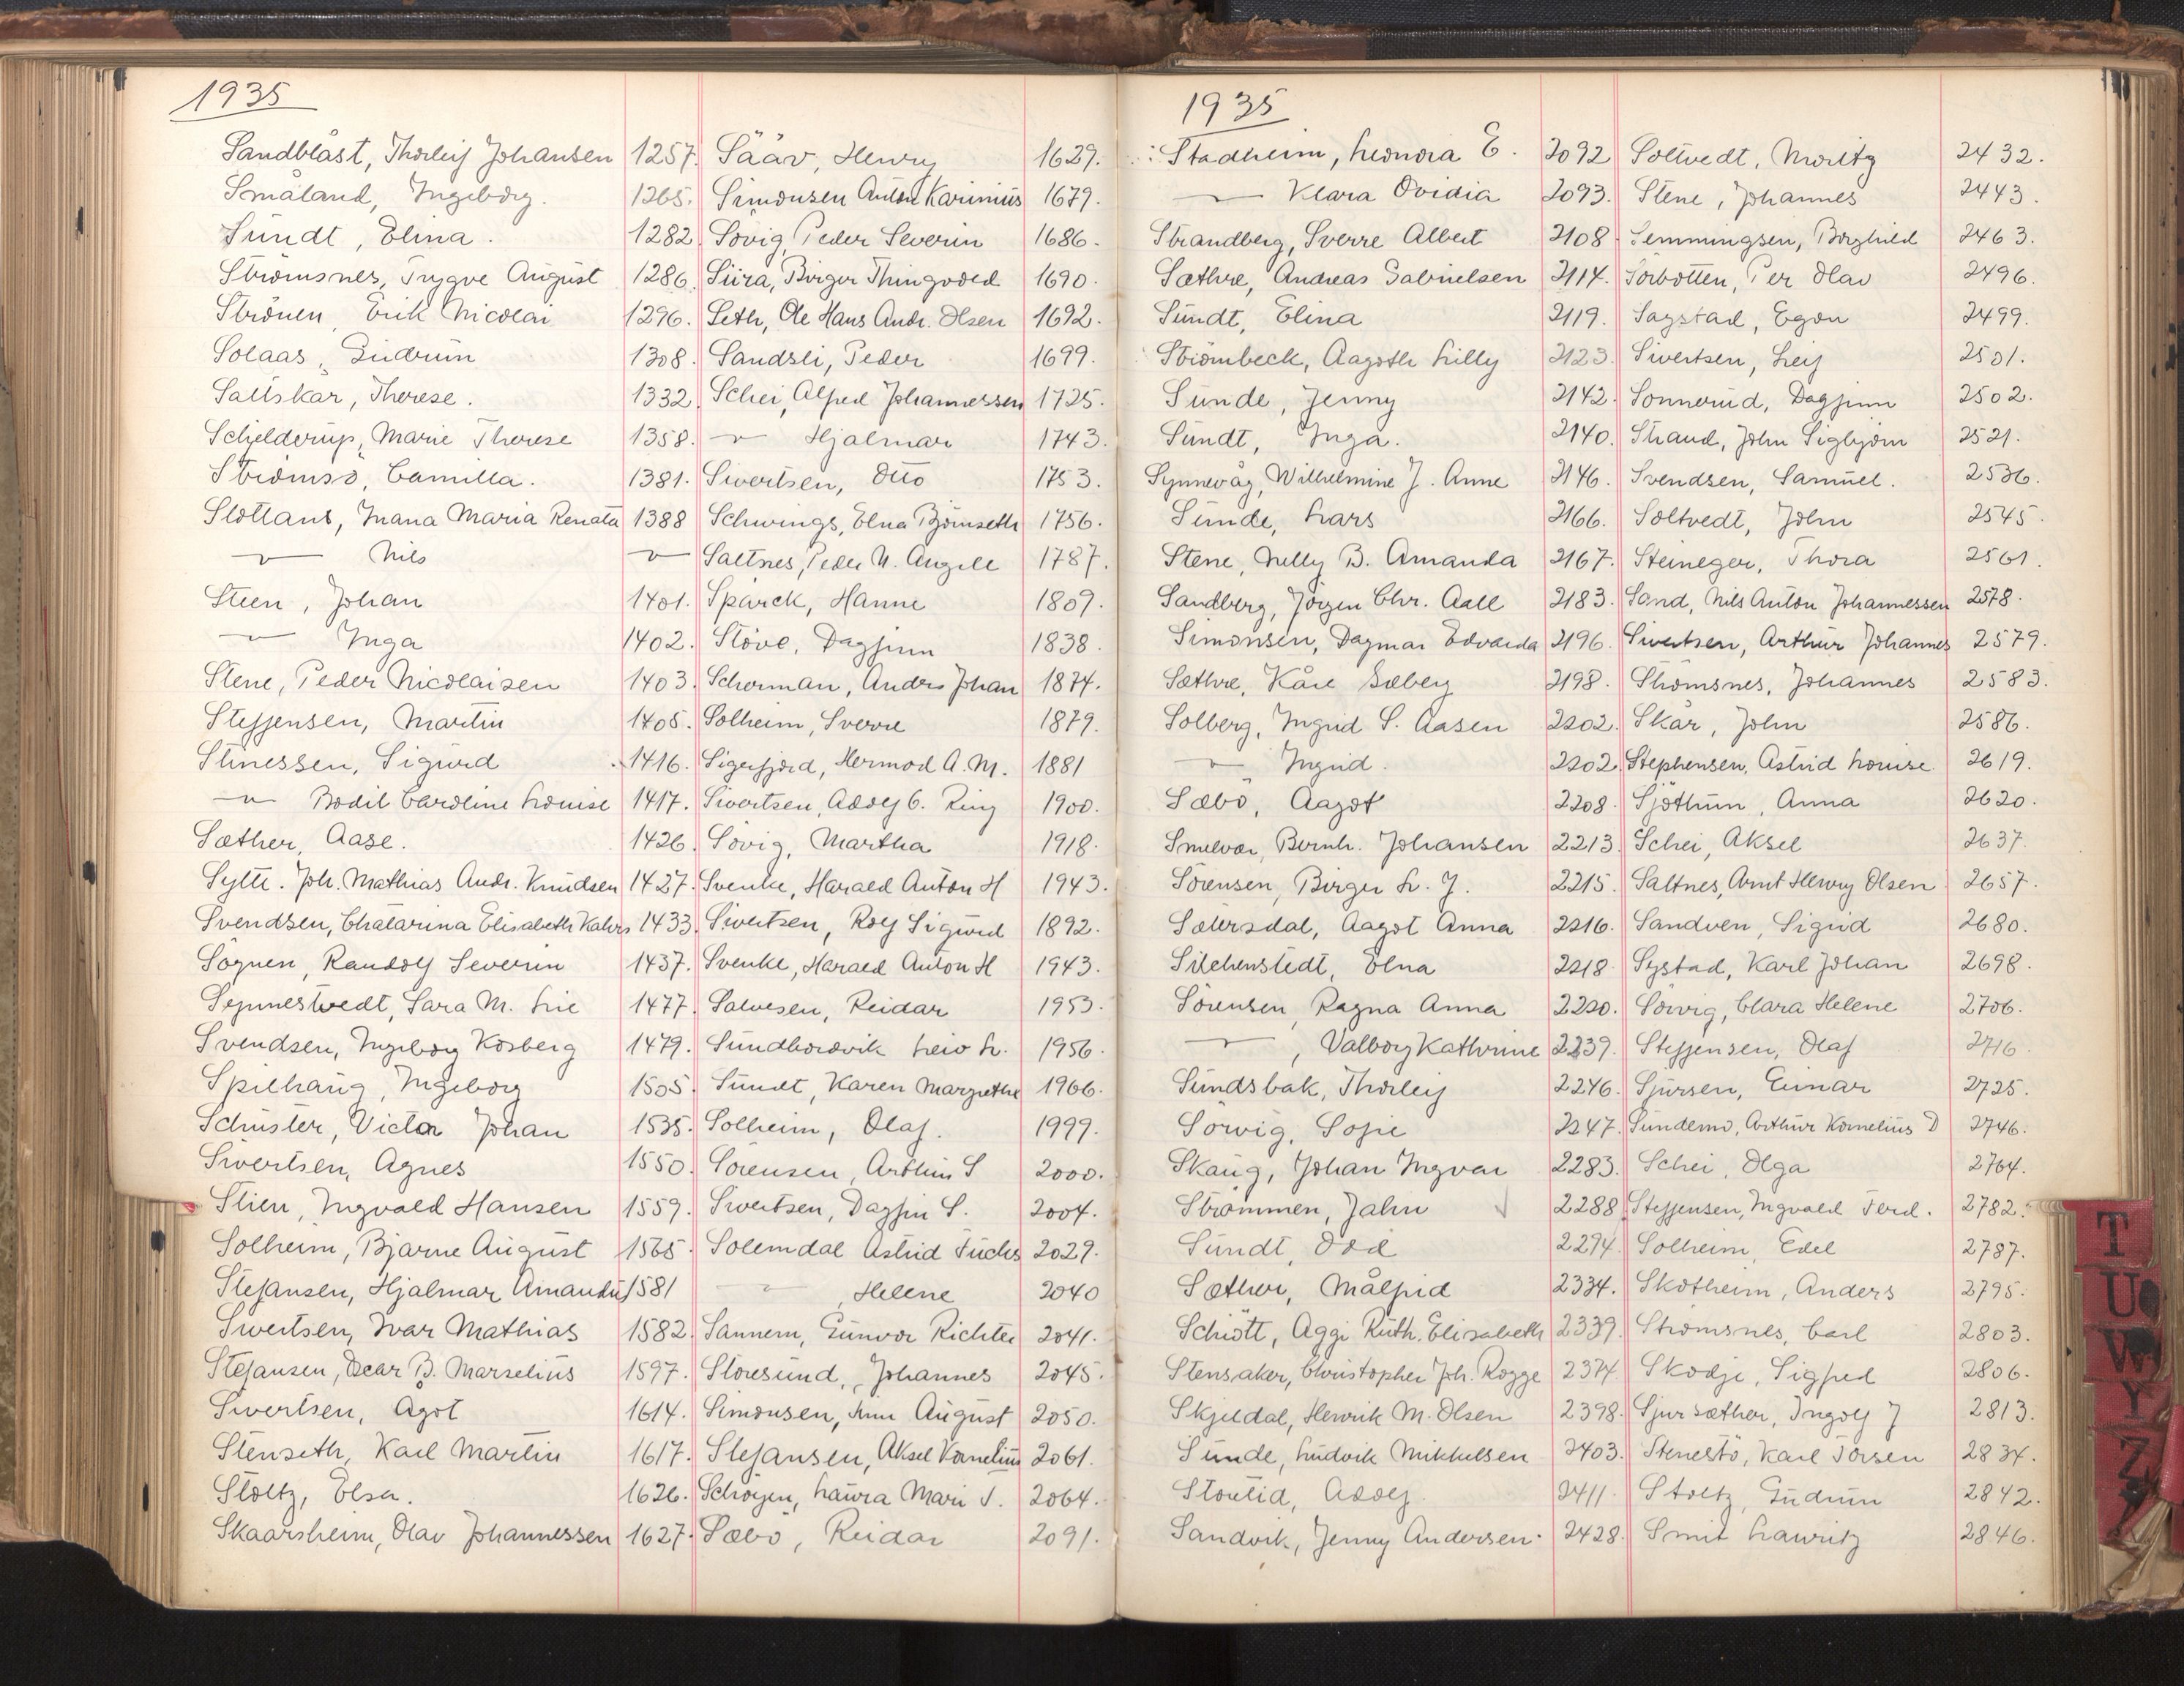 1935
Sandblåst, Thorleif Johansen 1257.
Småland, Ingeborg. 1265.
Sundt, Elina. 1282.
Strömsnes, Trygve August 1286.
Strönen, Erik Nicolai 1296.
Solaas, Gudrun 1308.
Saltskår, Therese. 1332
Schjelderup, Marie Therese 1358.
Strömsö, Camilla. 1381.
Slottans, Maria Renata 1388
〃 Nils 〃
Steen, Johan 1401.
〃 Inga 1402.
Stene, Peder Nicolaisen 1403.
Steffensen, Martin 1405.
Stinessen, Sigurd 1416.
〃 Bodil Caroline Louise 1417.
Sæther, Aase. 1426.
Sylte. Joh. Mathias Andr. Knudsen 1427.
Svendsen, Chatarina Elisabeth Kahrs 1433.
Sognen, Randolf Severin 1437.
Synnestvedt, Sara M. Lie 1477.
Svendsen, Ingeborg Kosberg 1479.
Spilhaug, Ingeborg 1505.
Schuster, Victor Johan 1535.
Sivertsen, Agnes 1550.
Stien, Ingvald Hansen 1559.
Solheim, Bjarne August 1565.
Stefansen, Hjalmar Amandus 1581
Sivertsen, Ivar Mathias 1582.
Stefansen, Oscar B. Marselius 1597.
Sivertsen, Ågot 1614.
Stenseth, Karl Martin 1617.
Stoltz, Elsa. 1626.
Skaarsheim, Olav Johannessen 1627.
Sääv, Henry 1629.
Simonsen Anton Karinius 1679.
Sövig, Peder Severin 1686.
Siira, Birger 1690.
Seth, Ole Hans Andr. Olsen 1692.
Sandsli, Peder 1699.
Schei, Alfred Johannessen 1725.
〃 Hjalmar 1743.
Sivertsen, Otto 1753.
Schwings, Elna Björnseth 1756.
Saltnes, Peder N. Angell 1787.
Sparck, Hanne 1809.
Stöve, Dagfinn 1838.
Schorman, Anders Johan 1874.
Solheim, Sverre 1879.
Sigerfjord, Hermod A. M. 1881
Sivertsen, Adolf C. Ring 1900.
Sövig, Martha 1918.
Svenke, Harald Anton H 1943.
Sivertsen, Rolf Sigurd 1892.
Svenke, Harald Anton H 1943.
Salvesen, Reidar 1953.
Sundbordvik L. 1956.
Sundt, Karen Margrethe 1966.
Solheim, Olaf. 1999.
Sörensen, Arthur S 2000.
Sivertsen, Dagfin S. 2004.
Solemdal Astrid Fuchs 2029.
〃, Helene 2040
Sannem, Gunvor Richter 2041.
Storesund, Johannes 2045.
Simonsen, August 2050.
Stefansen, Aksel Kornelius 2061.
Schöyen, Laura Mari S. 2064.
Sæbö, Reidar 2091.
1935
Stadheim, Leonora E. 2092
〃 Klara Ovidia 2093.
Strandberg, Sverre Albert 2108
Sæthre, Andreas Gabrielsen 2114.
Sundt, Elina 2119.
Strömbeck, Aagoth Lilly 2123.
Sunde, Jenny 2142.
Sundt, Inga. 2140.
Synnevåg, Wilhelmine J. Anne 2146.
Sunde, Lars 2166.
Stene, Nelly B. Amanda 2167.
Sandberg, Jörgen Chr. Aall 2183.
Simonsen, Dagmar Edvarda 2196.
Sæthre, Kåre Solberg 2198.
Solberg, Ingrid S. Aasen 2202.
〃 Ingrid. 2202.
Sæbö, Aagot 2208.
Smelvær, Bernh. Johansen 2213.
Sörensen, Birger L. J. 2215.
Sætersdal, Aagot Anna 2216.
Silchenstedt, Elna 2218
Sörensen, Ragna Anna 2220.
〃, Valborg Kathrine 2239.
Sundsbak, Thorleif 2246.
Sörvig, Sofie 2247.
Skaug, Johan Ingvar 2283.
Strømmen, Jahn √ 2288
Sundt, Odd 2294.
Sæther, Målfrid 2334.
Schiött, Aggi Ruth. Elisabeth 2339.
Stensaker, Christopher Joh. Rogge 2374
Skjeldal, Henrik M. Olsen 2398.
Sunde, Ludvik Mikkelsen 2403.
Stortid, Adolf 2411.
Sandvik, Jenny Andersen. 2428.
Soltvedt, Moritz 2432.
Stene, Johannes 2443.
Semmingsen, Borghild 2463.
Sorbotten, Per Olav 2496.
Sagstad, Egon 2499.
Sivertsen, Leif 2501.
Sonnerud, Dagfinn 2502.
Strand, John Sigbjörn 2521.
Svendsen, Samuel. 2536.
Soltvedt, John 2545.
Steineger, Thora 2561.
Sand, Nils Anton Johannessen 2578.
Sivertsen, Arthur Johannes 2579.
Strömsnes, Johannes 2583.
Skår, John 2586.
Stephensen, Astrid Louise 2619.
Sjöthun, Anna 2620.
Schei, Aksel 2637.
Saltnes, Arnt Henry Olsen 2657.
Sandven, Sigrid 2680.
Systad, Karl Johan 2698.
Sörvig, Clara Helene 2706.
Steffensen, Olaf 2716.
Sjursen, Einar 2725.
Sundemo, Arthur Kornelius D 2746.
Schei, Olga 2764.
Steffensen, Ingvald Ferd. 2782.
Solheim, Edel 2787.
Skotheim, Anders 2795.
Strömsnes, Carl 2803.
Skodje, Sigfred 2806.
Sjursæther, Ingolf J 2813.
Stenestö, Karl Torsen 2834.
Stoltz, Gudrun 2842.
Smit Lauritz 2846.
T
U
W
Y
Z